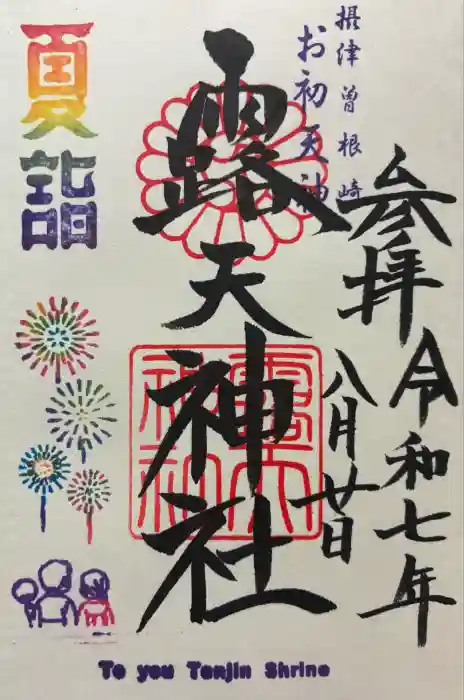 参拝
令和七年
八月廿日
摂津 曽根崎
お初天神
露天神社
露天
神社
夏詣
To you Tenjin Shrine